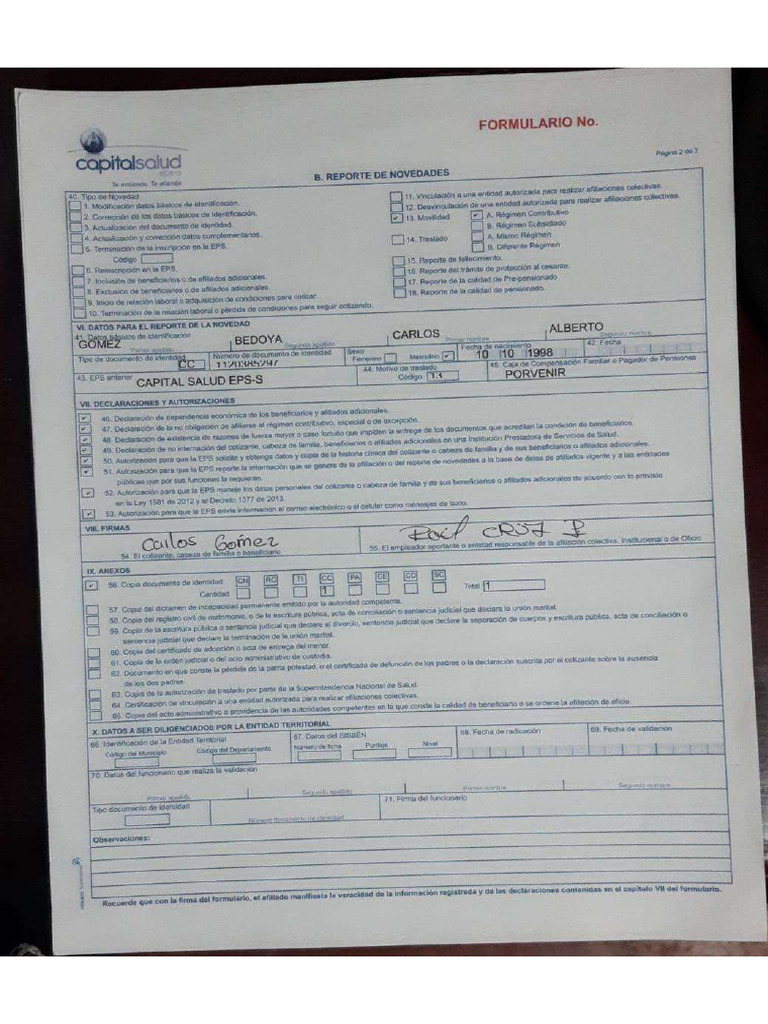 FORMULARIO No.
capitalsalud
EPS-S
Te entiende, Te atiende
Página 2 de 2
B. REPORTE DE NOVEDADES
40. Tipo de Novedad
1. Modificación datos básicos de identificación.
2. Corrección de los datos básicos de identificación.
3. Actualización del documento de identidad.
4. Actualización y corrección datos complementarios.
5. Terminación de la inscripción en la EPS.
Código
6. Reinscripción en la EPS.
7. Inclusión de beneficiarios o de afiliados adicionales.
8. Exclusión de beneficiarios o de afiliados adicionales.
9. Inicio de relación laboral o adquisición de condiciones para cotizar.
10. Terminación de la relación laboral o pérdida de condiciones para seguir cotizando.
11. Vinculación a una entidad autorizada para realizar afiliaciones colectivas.
12. Desvinculación de una entidad autorizada para realizar afiliaciones colectivas.
13. Movilidad
A. Régimen Contributivo
B. Régimen Subsidiado
14. Traslado
A. Mismo Régimen
B. Diferente Régimen
15. Reporte de fallecimiento.
16. Reporte del trámite de protección al cesante.
17. Reporte de la calidad de Pre-pensionado.
18. Reporte de la calidad de pensionado.
VI. DATOS PARA EL REPORTE DE LA NOVEDAD
41. Datos básicos de identificación
GOMEZ BEDOYA CARLOS ALBERTO
Primer apellido Segundo apellido Primer nombre Segundo nombre
Tipo de documento de identidad CC
Número de documento de identidad
Sexo
Femenino Masculino
Fecha de nacimiento
10 10 1998
42. Fecha
43. EPS anterior CAPITAL SALUD EPS-S
44. Motivo de traslado
Código 13
45. Caja de Compensación Familiar o Pagador de Pensiones
PORVENIR
VII. DECLARACIONES Y AUTORIZACIONES
46. Declaración de dependencia económica de los beneficiarios y afiliados adicionales.
47. Declaración de la no obligación de afiliarse al régimen contributivo, especial o de excepción.
48. Declaración de existencia de razones de fuerza mayor o caso fortuito que impiden la entrega de los documentos que acreditan la condición de beneficiarios.
49. Declaración de no internación del cotizante, cabeza de familia, beneficiarios o afiliados adicionales en una Institución Prestadora de Servicios de Salud.
50. Autorización para que la EPS solicite y obtenga datos y copia de la historia clínica del cotizante o cabeza de familia y de sus beneficiarios o afiliados adicionales.
51. Autorización para que la EPS reporte la información que se genere de la afiliación o del reporte de novedades a la base de datos de afiliados vigente y a las entidades
públicas que por sus funciones la requieran.
52. Autorización para que la EPS maneje los datos personales del cotizante o cabeza de familia y de sus beneficiarios o afiliados adicionales de acuerdo con lo previsto
en la Ley 1581 de 2012 y el Decreto 1377 de 2013.
53. Autorización para que la EPS envíe información al correo electrónico o al celular como mensajes de texto.
VIII. FIRMAS
Carlos Gomez
54. El cotizante, cabeza de familia o beneficiario.
55. El empleador aportante o entidad responsable de la afiliación colectiva. Institucional o de Oficio
IX. ANEXOS
56. Copia documento de identidad CN RC TI CC PA CE CD SC
Cantidad 1 Total 1
57. Copia del dictamen de incapacidad permanente emitido por la autoridad competente.
58. Copia del registro civil de matrimonio, o de la escritura pública, acta de conciliación o sentencia judicial que declare la unión marital.
59. Copia de la escritura pública o sentencia judicial que declare el divorcio, sentencia judicial que declare la separación de cuerpos y escritura pública, acta de conciliación o
sentencia judicial que declare la terminación de la unión marital.
60. Copia del certificado de adopción o acta de entrega del menor.
61. Copia de la orden judicial o del acto administrativo de custodia.
62. Documento en que conste la pérdida de la patria potestad, o el certificado de defunción de los padres o la declaración suscrita por el cotizante sobre la ausencia
de los dos padres.
63. Copia de la autorización de traslado por parte de la Superintendencia Nacional de Salud.
64. Certificación de vinculación a una entidad autorizada para realizar afiliaciones colectivas.
65. Copia del acto administrativo o providencia de las autoridades competentes en la que conste la calidad de beneficiario o se ordene la afiliación de oficio.
X. DATOS A SER DILIGENCIADOS POR LA ENTIDAD TERRITORIAL
66. Identificación de la Entidad Territorial
Código del Municipio Código del Departamento
67. Datos del SISBÉN
Número de ficha Puntaje Nivel
68. Fecha de radicación
69. Fecha de validación
70. Datos del funcionario que realiza la validación
Primer apellido Segundo apellido Primer nombre Segundo nombre
Tipo documento de identidad
Número documento de identidad
71. Firma del funcionario
Observaciones:
Recuerde que con la firma del formulario, el afiliado manifiesta la veracidad de la información registrada y de las declaraciones contenidas en el capítulo VII del formulario.